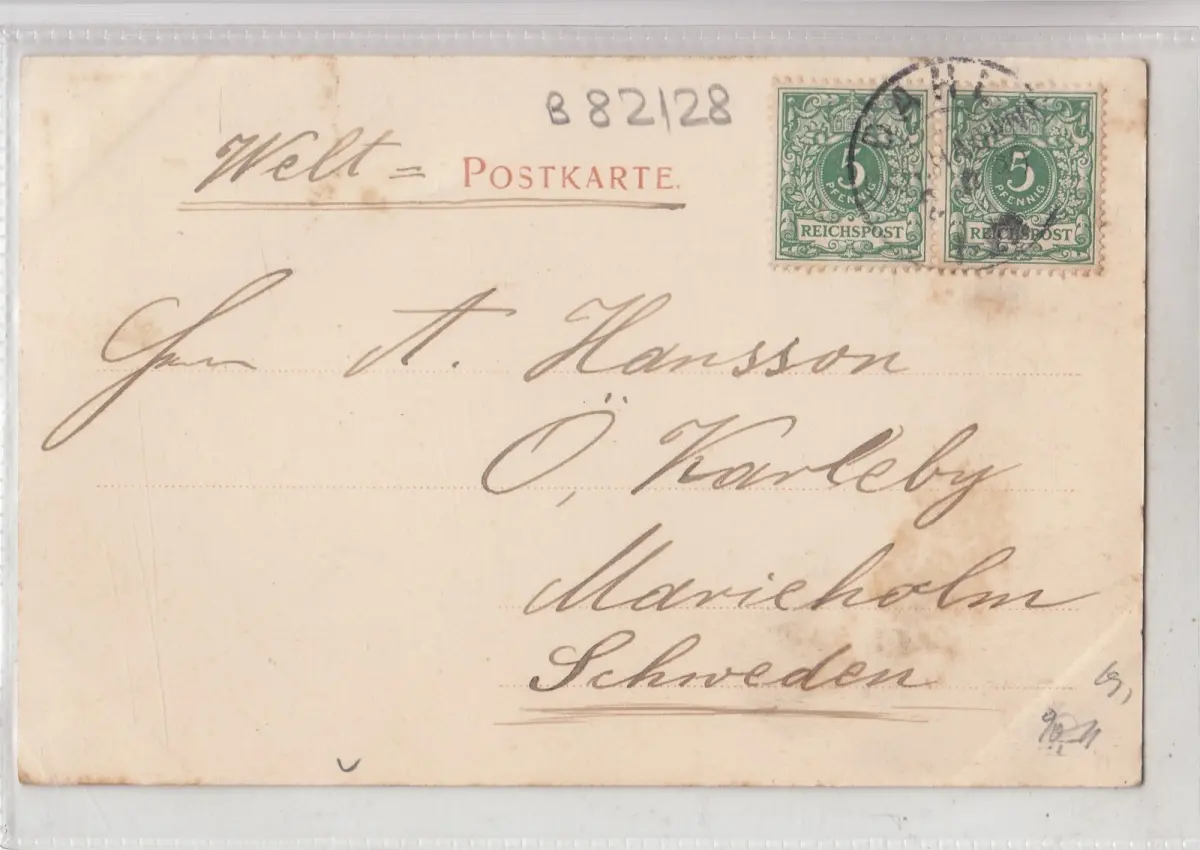 B 82/28
Welt = POSTKARTE.
5 PFENNIG REICHSPOST
5 PFENNIG REICHSPOST
A. Hansson
Ö, Karleby
Marieholm
Schweden